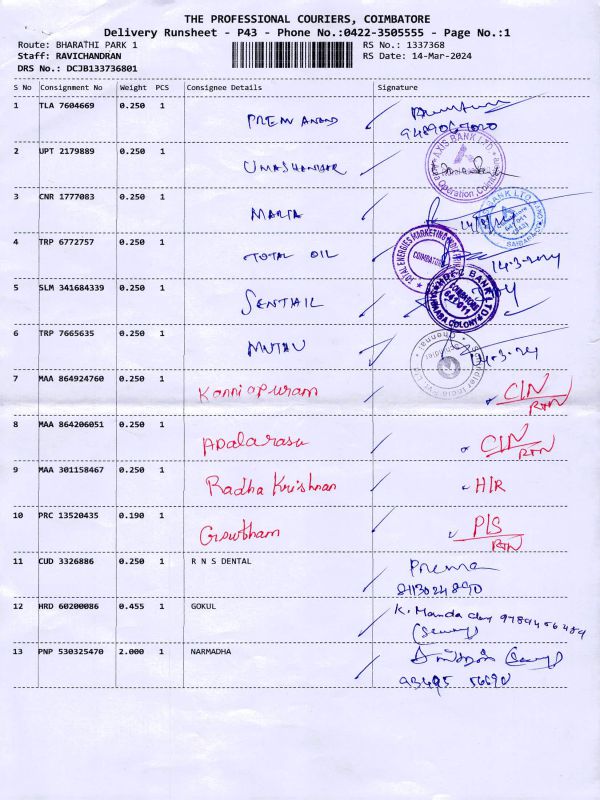 THE PROFESSIONAL COURIERS, COIMBATORE
Delivery Runsheet - P43 - Phone No.:0422-3505555 - Page No.:1
Route: BHARATHI PARK 1 RS No.: 1337368
Staff: RAVICHANDRAN RS Date: 14-Mar-2024
DRS No.: DCJB133736801
S No Consignment No Weight PCS Consignee Details Signature
1 TLA 7604669 0.250 1 PREM ANAND
2 UPT 2179889 0.250 1 UMASHANKAR
AXIS BANK LTD
3 CNR 1777083 0.250 1 MARIA
BANK LTD
4 TRP 6772757 0.250 1 TOTAL OIL 14-3-2024
TOTAL ENERGIES MARKETING
COIMBATORE
5 SLM 341684339 0.250 1 SENTHIL
HDFC BANK LTD
COIMBATORE
641 011
COLONY
6 TRP 7665635 0.250 1 MUTHU 14-3-24
7 MAA 864924760 0.250 1 Kanniapuram C/N
RTN
8 MAA 864206051 0.250 1 Adalarasu C/N
RTN
9 MAA 301158467 0.250 1 Radha Krishnan H/R
10 PRC 13520435 0.190 1 Growtham P/S
RTN
11 CUD 3326886 0.250 1 R N S DENTAL Prema
12 HRD 60200086 0.455 1 GOKUL K. Manda
(Security)
13 PNP 530325470 2.000 1 NARMADHA